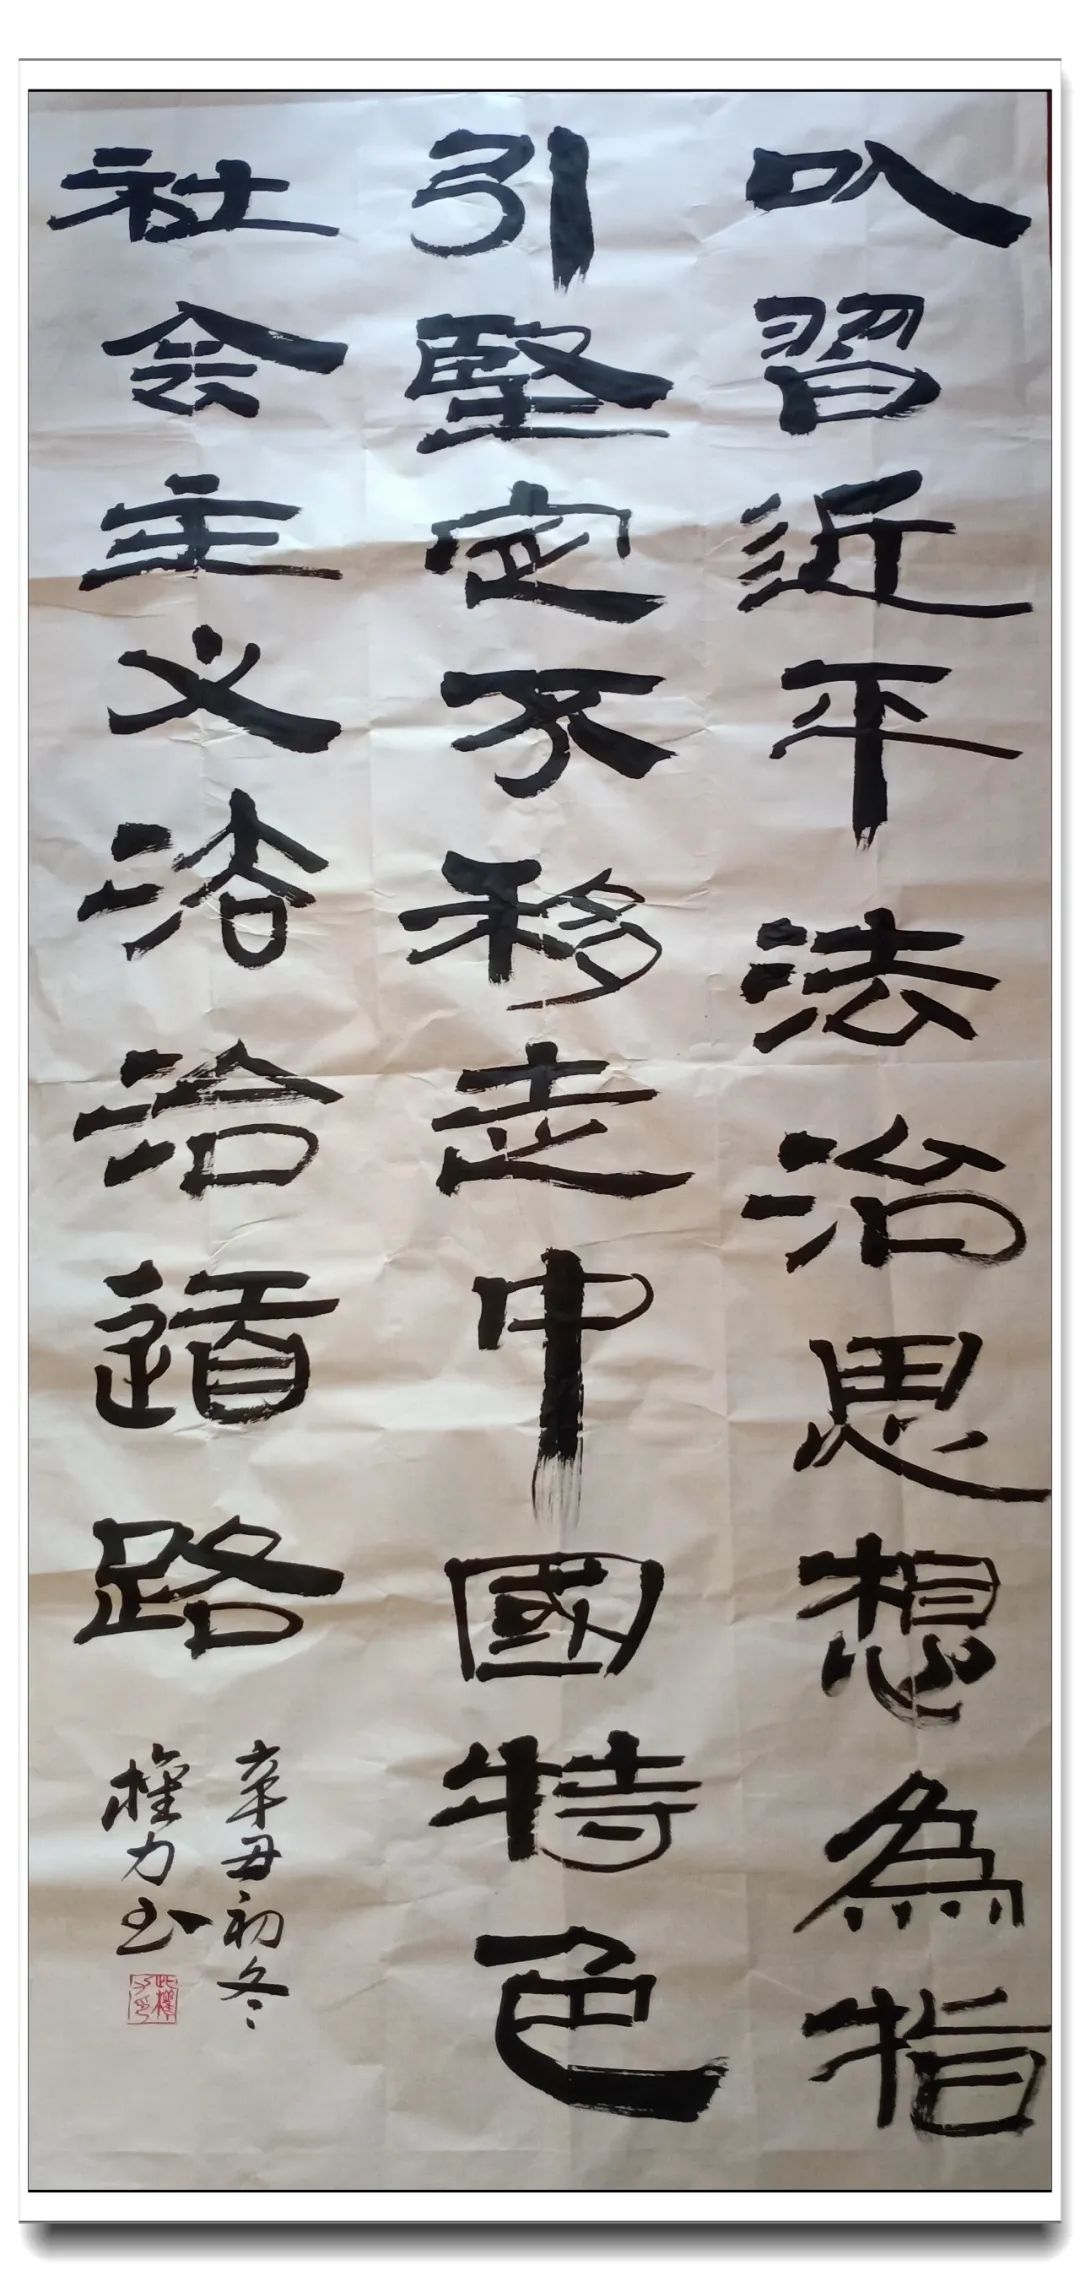 以習近平法治思想為指
引堅定不移走中國特色
社会主义法治道路
辛丑初冬
權力书